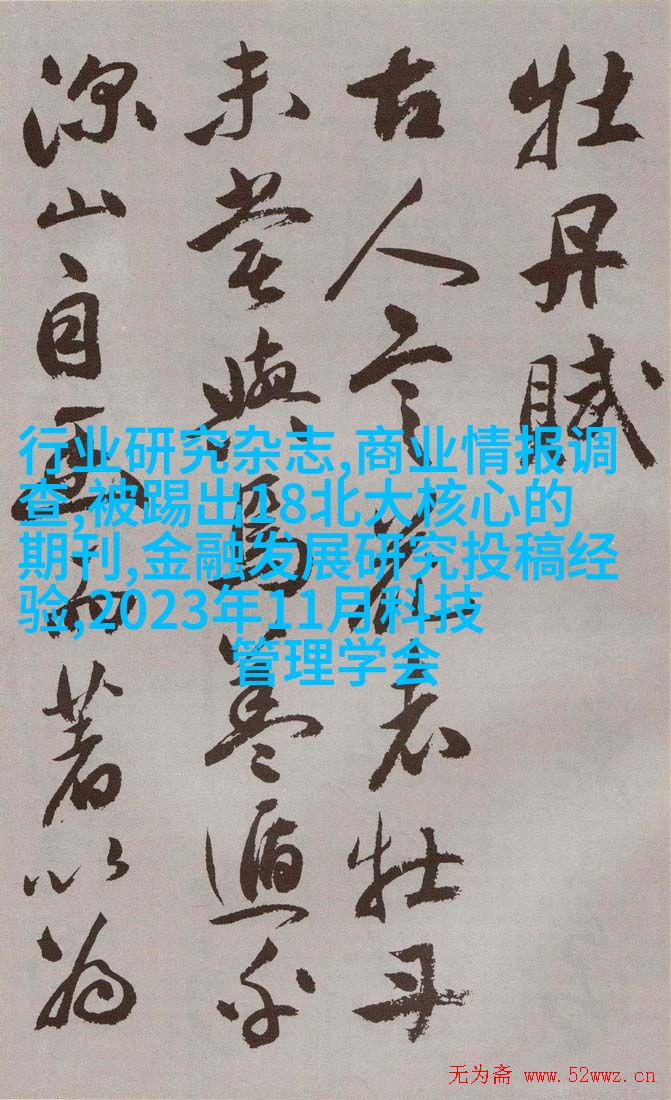 牡丹賦
古人言花者牡丹
未嘗與焉盖遁乎
深山自幽而著以為
行业研究杂志,商业情报调
查,被踢出18北大核心的
期刊,金融发展研究投稿经
验,2023年11月科技
管理学会
无为斋 www.52wwz.cn